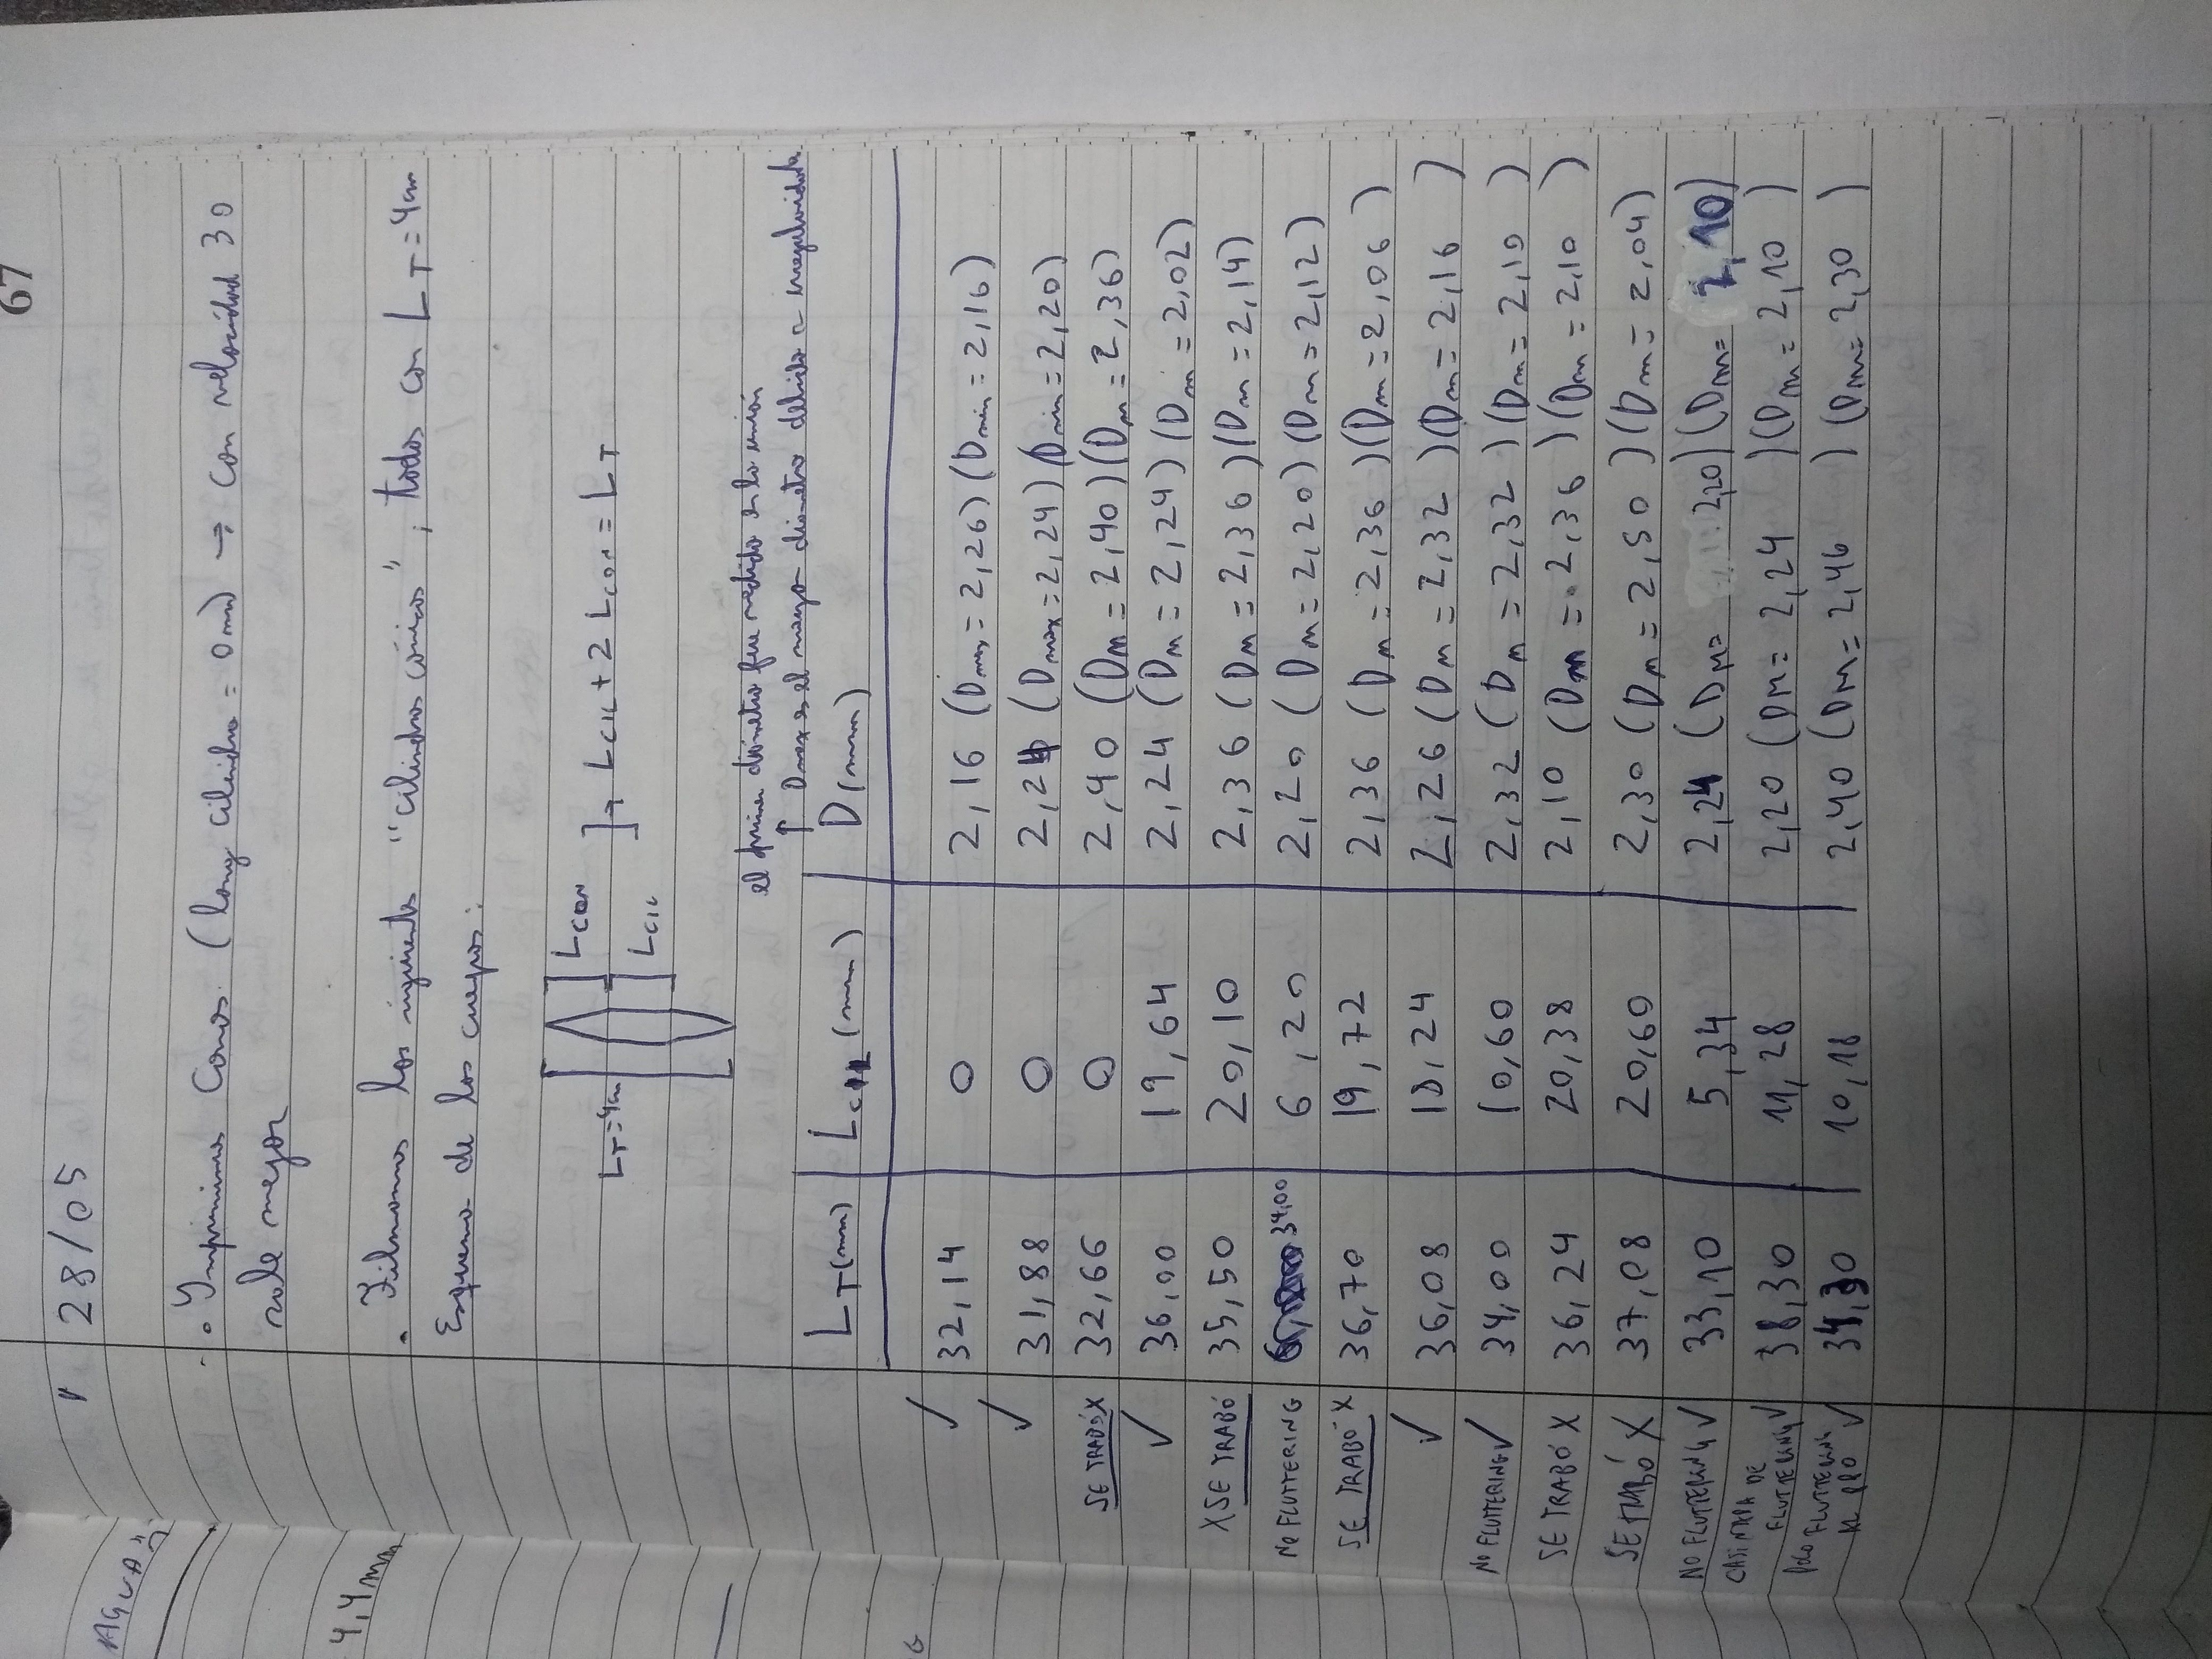 67
28/05
• Imprimimos Conos. (long cilindro = 0 mm) → con velocidad 30
sale mejor
• Filmamos los siguientes "cilindros cónicos", todos con LT = 4cm
Esquema de los cuerpos:
LT=4cm
Lcon
Lcil
Lcil + 2 Lcon = LT
el primer diámetro fue medido en la unión
Dmax es el mayor diámetro debido a irregularidades
LT(mm) Lcil (mm) D(mm)
✓ 32,14 0 2,16 (Dmax = 2,26) (Dmin = 2,16)
✓ 31,88 0 2,24 (Dmax = 2,24) (Dmin = 2,20)
SE TRABÓ X 32,66 0 2,40 (DM = 2,40) (Dm = 2,36)
✓ 36,00 19,64 2,24 (DM = 2,24) (Dm = 2,02)
X SE TRABÓ 35,50 20,10 2,36 (DM = 2,36) (Dm = 2,14)
NO FLUTTERING 34,00 6,20 2,20 (DM = 2,20) (Dm = 2,12)
SE TRABÓ X 36,70 19,72 2,36 (DM = 2,36) (Dm = 2,06)
✓ 36,08 18,24 2,26 (DM = 2,32) (Dm = 2,16)
NO FLUTTERING ✓ 34,00 10,60 2,32 (DM = 2,32) (Dm = 2,10)
SE TRABÓ X 36,24 20,38 2,10 (DM = 2,36) (Dm = 2,10)
SE TRABÓ X 37,08 20,60 2,30 (DM = 2,50) (Dm = 2,04)
NO FLUTTERING ✓ 33,10 5,34 2,24 (DM = 2,20) (Dm = 2,10)
CASI NADA DE
FLUTTERING ✓ 38,30 11,28 2,20 (DM = 2,24) (Dm = 2,10)
POCO FLUTTERING
✓ 34,30 10,18 2,40 (DM = 2,46) (Dm = 2,30)
AGUA
4,4mm